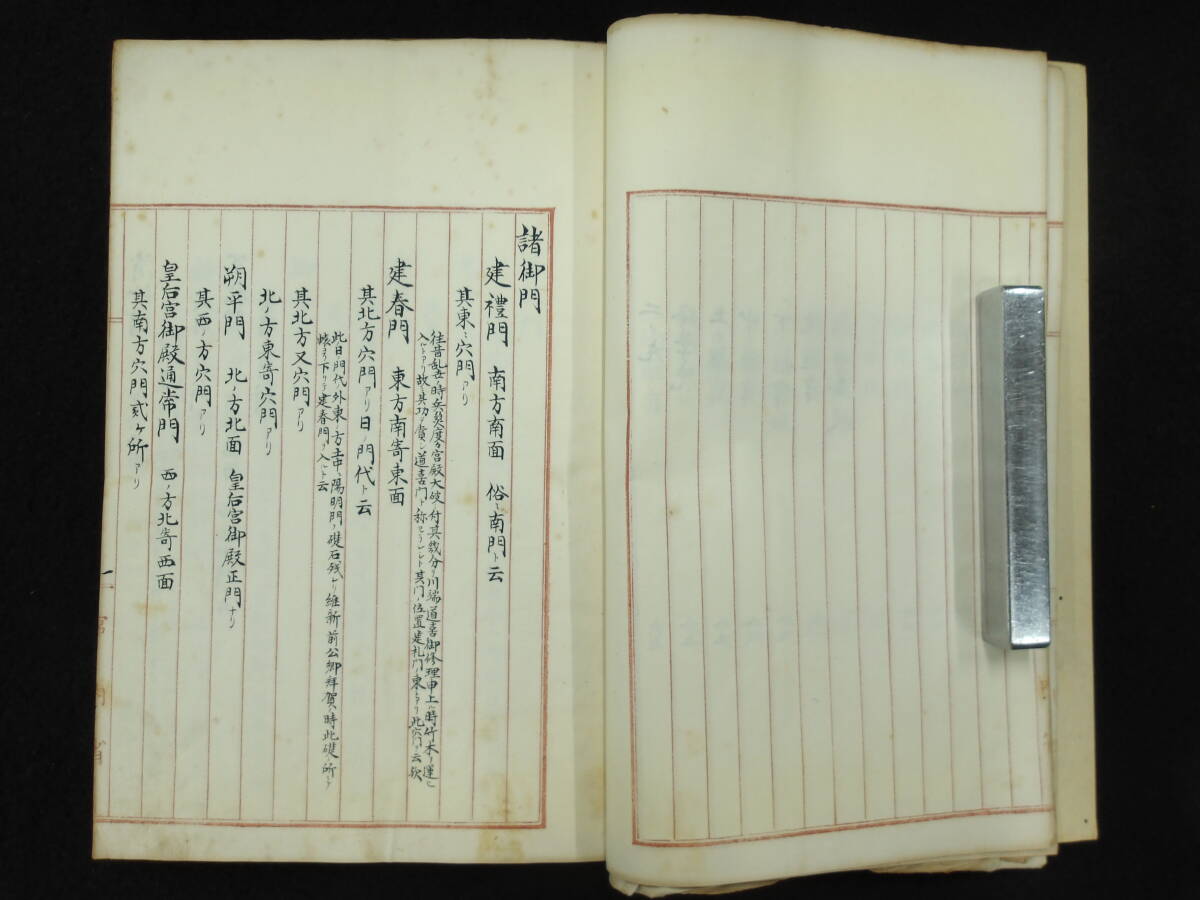 諸御門
建禮門　南方南面　俗ニ南門ト云
其東ニ穴門アリ
往昔乱世ノ時兵燹度々宮殿大破ニ付其裁分ヲ川端道喜御修理申上ル時竹木ヲ運ヒ
入ルトアリ故ニ其功ヲ賞シ道喜門ト称セラレシト其門ノ位置建礼門ノ東ニアリ此穴門ヲ云歟
建春門　東方南寄東面
其北方穴門アリ日ノ門代ト云
此日ノ門代外東ノ方土中ニ陽明門ノ礎石残レリ維新前公卿拝賀ノ時此礎ノ所ニテ
下リテ建春門ヲ入ルト云
其北方又穴門アリ
北ノ方東寄穴門アリ
朔平門　北ノ方北面　皇后宮御殿正門ナリ
其西ノ方穴門アリ
皇后宮御殿通常門　西ノ方北寄西面
其南方穴門貳ヶ所アリ
宮内省